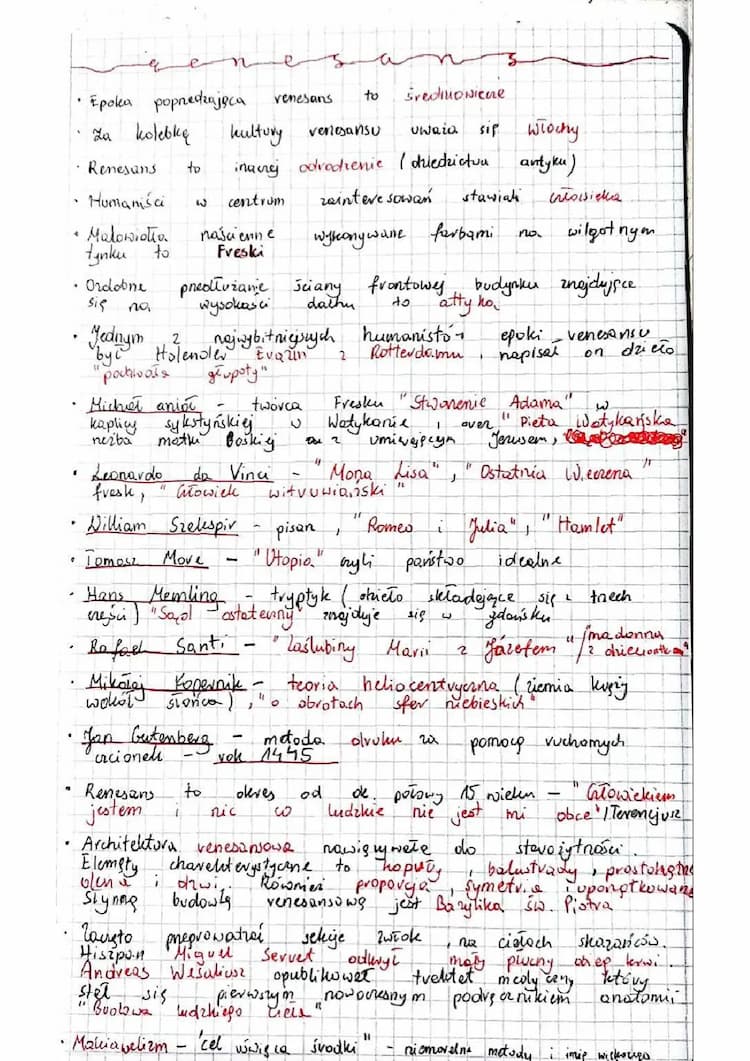 renesans
· Epoka poprzedzająca renesans to średniowiecze
· Za kolebkę kultury renesansu uważa się Włochy
· Renesans to inaczej odrodzenie (dziedzictwu antyku)
· Humaniści w centrum zainteresowań stawiali człowieka
· Malowidła naścienne wykonywane farbami na wilgotnym
tynku to Freski
· Ozdobne przedłużanie ściany frontowej budynku znajdujące
się na wysokości dachu to attyka
· Jednym z najwybitniejszych humanistów epoki renesansu
był Holender Erazm z Rotterdamu, napisał on dzieło
"pochwała głupoty"
· Michał anioł - twórca Fresku "Stworzenie Adama" w
kaplicy sykstyńskiej w Watykanie, oraz "Pieta Watykańska
rzeźba matki Boskiej z umierającym Jezusem,
· Leonardo da Vinci - "Mona Lisa", "Ostatnia Wieczerza"
fresk, "Człowiek witruwiański"
· William Szekspir - pisarz, "Romeo i Julia", "Hamlet"
· Tomasz More - "Utopia" czyli państwo idealne
· Hans Memling - tryptyk (dzieło składające się z trzech
części) "Sąd ostateczny" znajduje się w gdańsku
· Rafael Santi - "Zaślubiny Marii z Józefem"/"madonna
z dzieciątkiem"
· Mikołaj Kopernik - teoria heliocentryczna (ziemia krąży
wokół słońca), "o obrotach sfer niebieskich"
· Jan Gutenberg - metoda druku za pomocą ruchomych
czcionek - rok 1445
· Renesans to okres od ok. połowy 15 wieku - "Człowiekiem
jestem i nic co ludzkie nie jest mi obce"/Terencjusz
· Architektura renesansowa nawiązywała do starożytności.
Elemęty charakterystyczne to kopuły, balustrady, prostokątne
okna i drzwi. Również proporcja, symetria i uporządkowanie
Słynną budowlą renesansową jest Bazylika św. Piotra
· Zaczęto przeprowadzać sekcje zwłok, na ciałach skazańców.
Hiszpan Miguel Servet odkrył mały płucny obieg krwi.
Andreas Wesaliusz opublikował traktat medyczny który
stał się pierwszym nowoczesnym podręcznikiem anatomii
"Budowa ludzkiego ciała"
· Makiawelizm - "cel uświęca środki" - niemoralne metody w imię